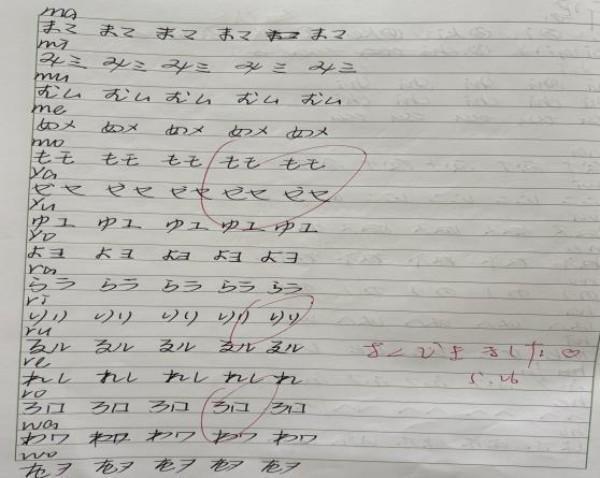 ma
まマ まマ まマ まマ まマ
mi
みミ みミ みミ みミ みミ
mu
むム むム むム むム むム
me
めメ めメ めメ めメ めメ
mo
もモ もモ もモ もモ もモ
ya
やヤ やヤ やヤ やヤ やヤ
yu
ゆユ ゆユ ゆユ ゆユ ゆユ
yo
よヨ よヨ よヨ よヨ よヨ
ra
らラ らラ らラ らラ らラ
ri
りリ りリ りリ りリ りリ
ru
るル るル るル るル るル
よくできました♡
re
れレ れレ れレ れレ れ
5.26
ro
ろロ ろロ ろロ ろロ ろロ
wa
わワ わワ わワ わワ わワ
wo
をヲ をヲ をヲ をヲ をヲ